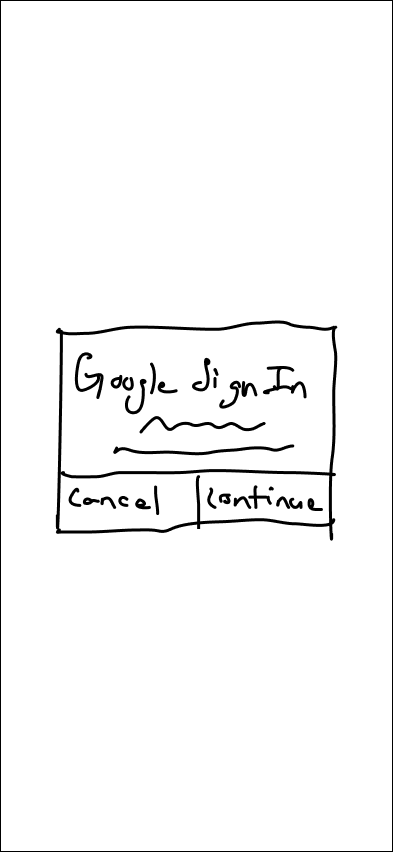 Google Sign In
Cancel
Continue